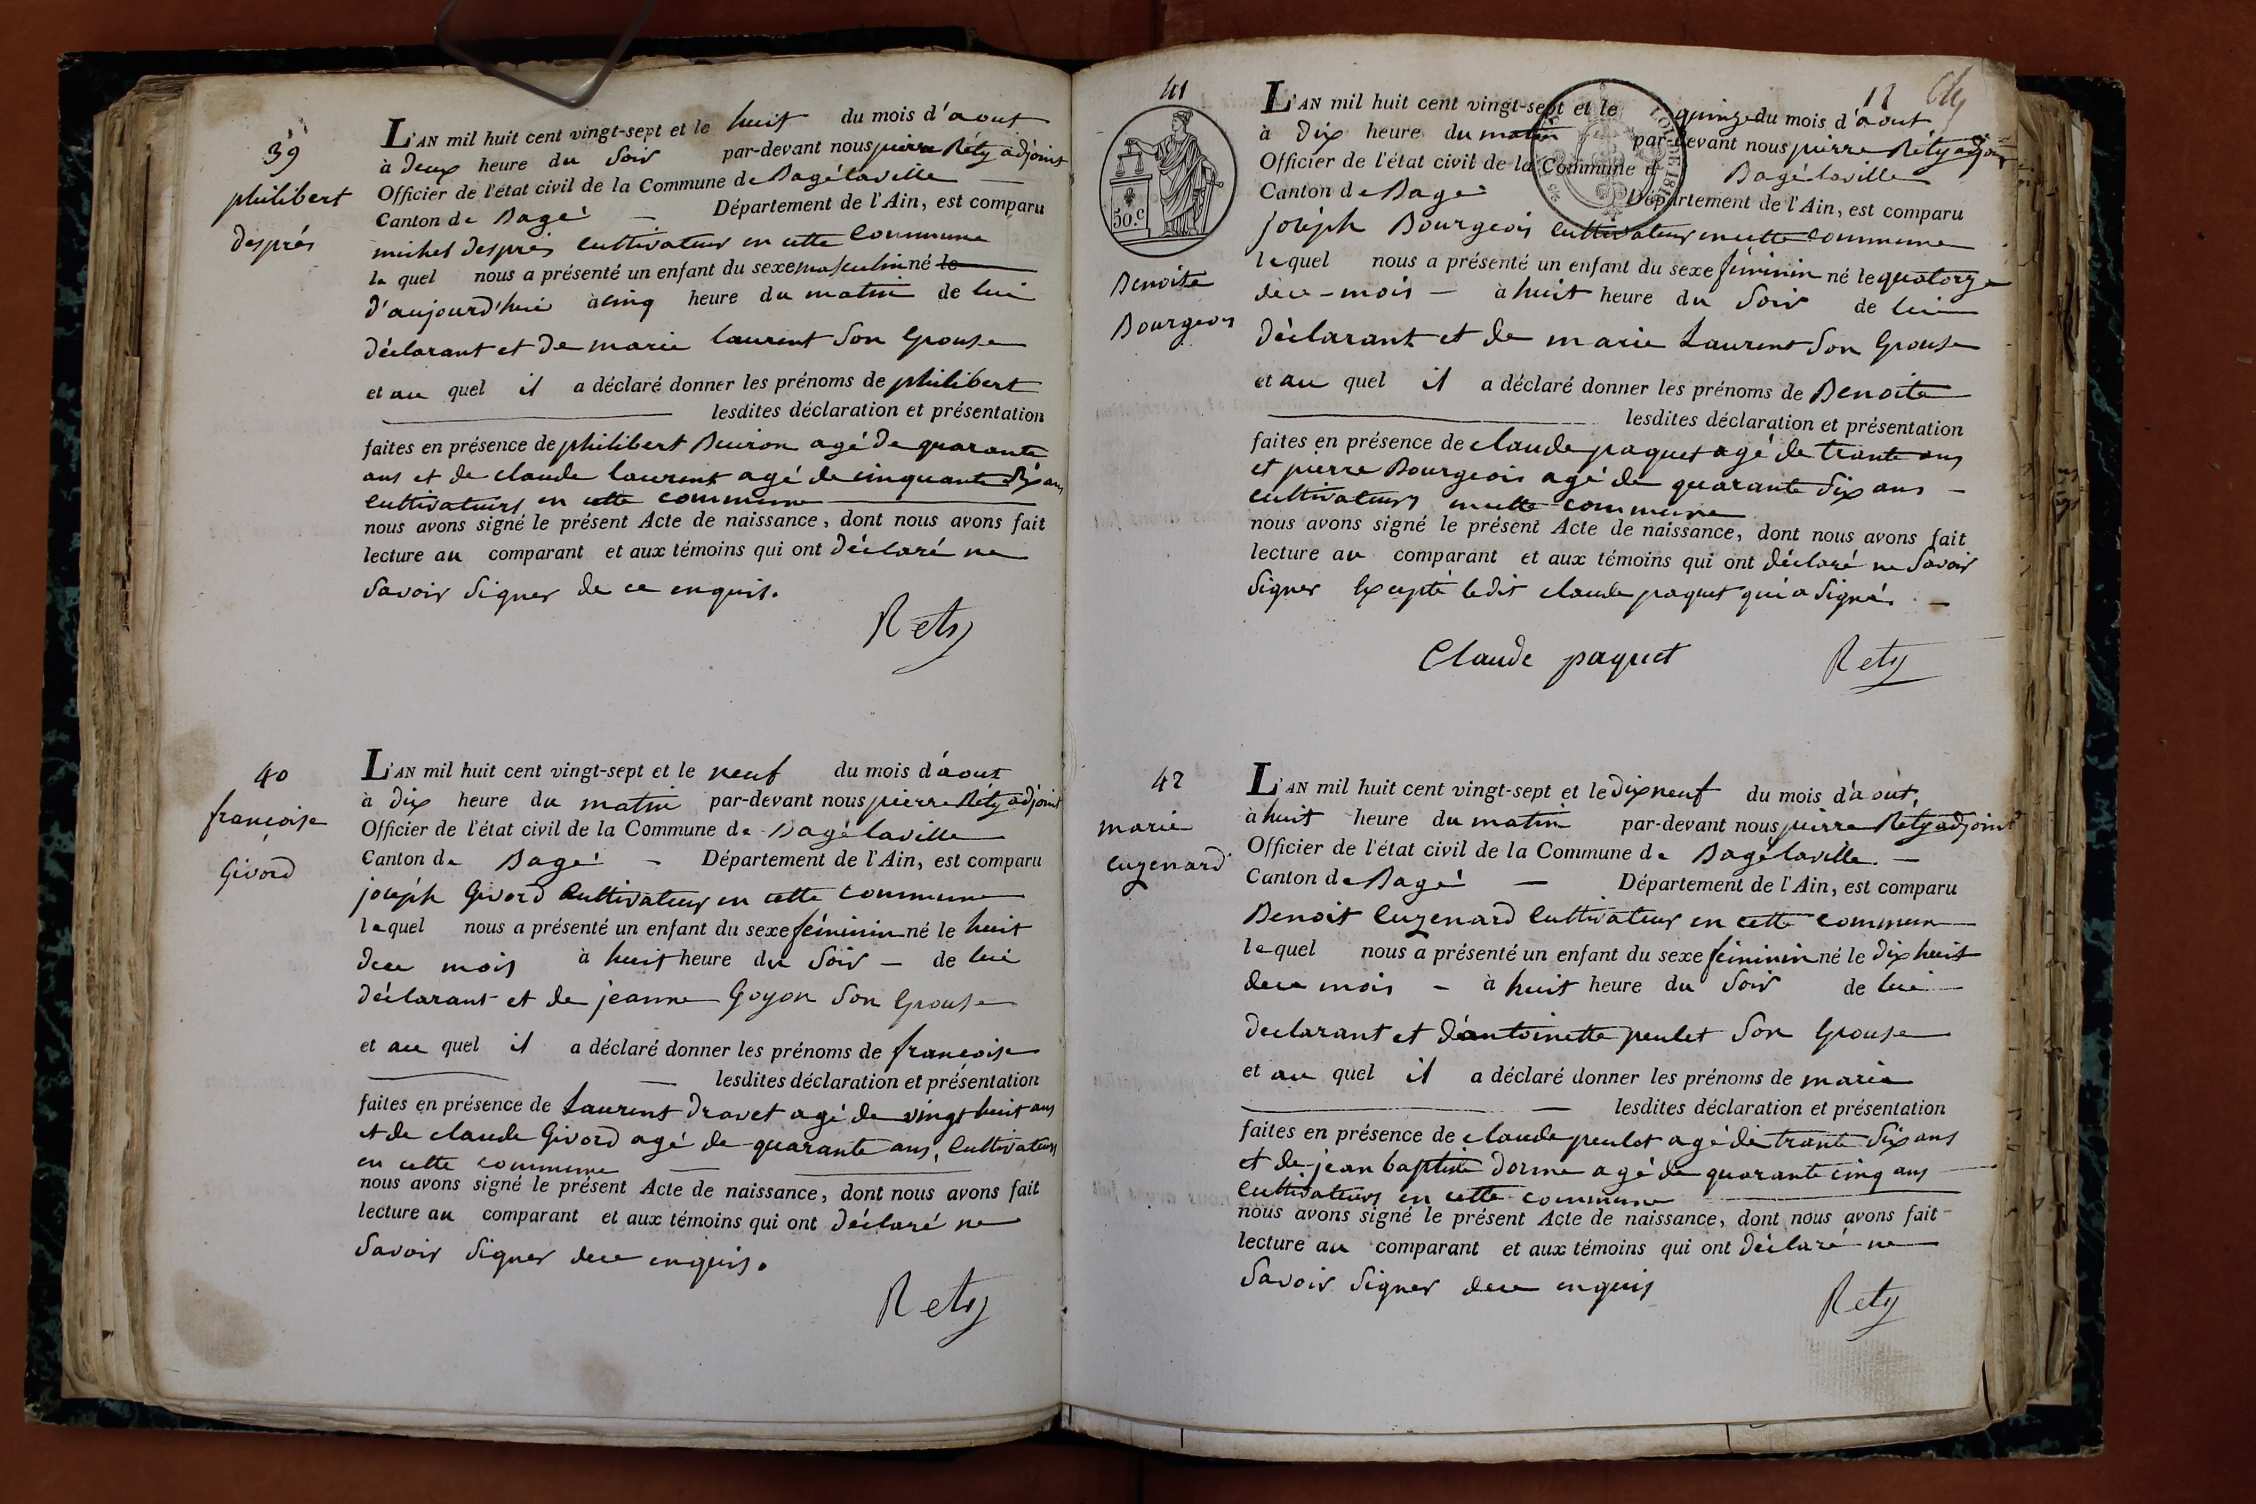 39
philibert
després
L'AN mil huit cent vingt-sept et le huit du mois d'aout
à deux heure du Soir par-devant nous pierre Réty adjoint
Officier de l'état civil de la Commune de Bagélaville
Canton de Bagé Département de l'Ain, est comparu
michel després Cultivateur en cette Commune
le quel nous a présenté un enfant du sexe masculin né le
d'aujourd'hui à cinq heure du matin de lui
déclarant et de marie laurent Son Epouse
et au quel il a déclaré donner les prénoms de philibert
lesdites déclaration et présentation
faites en présence de philibert Buiron agé de quarante
ans et de claude laurent agé de cinquante Six ans
Cultivateurs en cette commune
nous avons signé le présent Acte de naissance, dont nous avons fait
lecture au comparant et aux témoins qui ont déclaré ne
Savoir Signer de ce enquis.
Rety
40
francoise
Givord
L'AN mil huit cent vingt-sept et le neuf du mois d'aout
à dix heure du matin par-devant nous pierre Réty adjoint
Officier de l'état civil de la Commune de Bagélaville
Canton de Bagé Département de l'Ain, est comparu
joseph Givord Cultivateur en cette commune
lequel nous a présenté un enfant du sexe féminin né le huit
dece mois à huit heure du Soir de lui
déclarant et de jeanne Goyon Son Epouse
et au quel il a déclaré donner les prénoms de francoise
lesdites déclaration et présentation
faites en présence de Laurent Dravet agé de vingt huit ans
et de claude Givord agé de quarante ans, Cultivateurs
en cette commune
nous avons signé le présent Acte de naissance, dont nous avons fait
lecture au comparant et aux témoins qui ont déclaré ne
Savoir Signer dece enquis.
Rety
41
50.c
Benoite
Bourgeois
12
L'AN mil huit cent vingt-sept et le quinze du mois d'aout
à Dix heure du matin par-devant nous pierre Réty adjoint
Officier de l'état civil de la Commune d Bagélaville
Canton de Bagé Département de l'Ain, est comparu
Joseph Bourgeois Cultivateur en cette commune
lequel nous a présenté un enfant du sexe féminin né le quatorze
dece-mois à huit heure du Soir de lui
déclarant et de marie Laurent Son Epouse
et au quel il a déclaré donner les prénoms de Benoite
lesdites déclaration et présentation
faites en présence de claude paquet agé de trante ans
et pierre Bourgeois agé de quarante Six ans
cultivateurs en cette commune
nous avons signé le présent Acte de naissance, dont nous avons fait
lecture au comparant et aux témoins qui ont déclaré ne Savoir
Signer Excepté ledit claude paquet qui a Signé.
Claude paquet Rety
42
marie
Cuzenard
L'AN mil huit cent vingt-sept et le dix neuf du mois d'aout,
à huit heure du matin par-devant nous pierre Réty adjoint
Officier de l'état civil de la Commune de Bagélaville
Canton de Bagé Département de l'Ain, est comparu
Benoit Cuzenard Cultivateur en cette commun
lequel nous a présenté un enfant du sexe féminin né le dix huit
dece mois à huit heure du Soir de lui
declarant et d'antoinette peulet Son Epouse
et au quel il a déclaré donner les prénoms de marie
lesdites déclaration et présentation
faites en présence de claude peulet agé de trante Six ans
et de jean baptiste dorme agé de quarante cinq ans
Cultivateurs en cette commune
nous avons signé le présent Acte de naissance, dont nous avons fait
lecture au comparant et aux témoins qui ont déclaré ne
Savoir Signer dece enquis
Rety